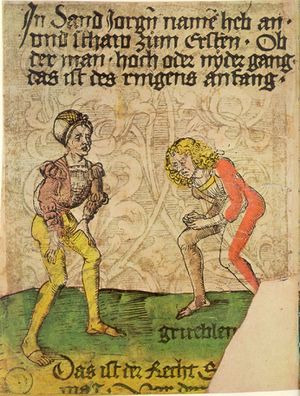 In Sand Jorgn namē heb an ·
vnd schaw zum Ersten · Ob
der man · hoch oder nyder gang
das ist des ringens anfang ·
grueblen
Das ist der Recht S